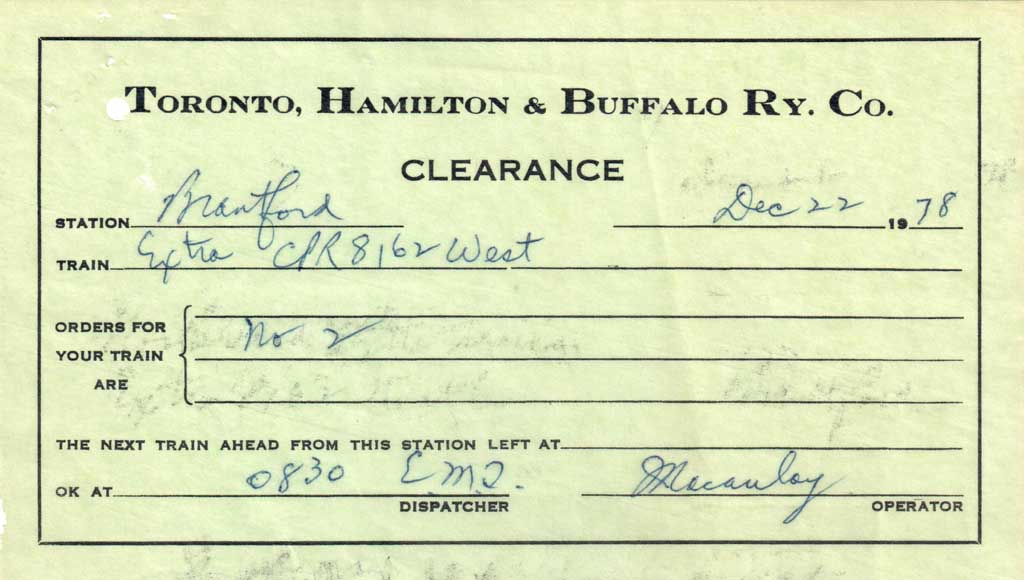 TORONTO, HAMILTON & BUFFALO RY. CO.
CLEARANCE
STATION Brantford Dec 22 1978
TRAIN Extra CPR 8162 West
ORDERS FOR YOUR TRAIN ARE No 2
THE NEXT TRAIN AHEAD FROM THIS STATION LEFT AT
OK AT 0830 Macaulay
DISPATCHER OPERATOR